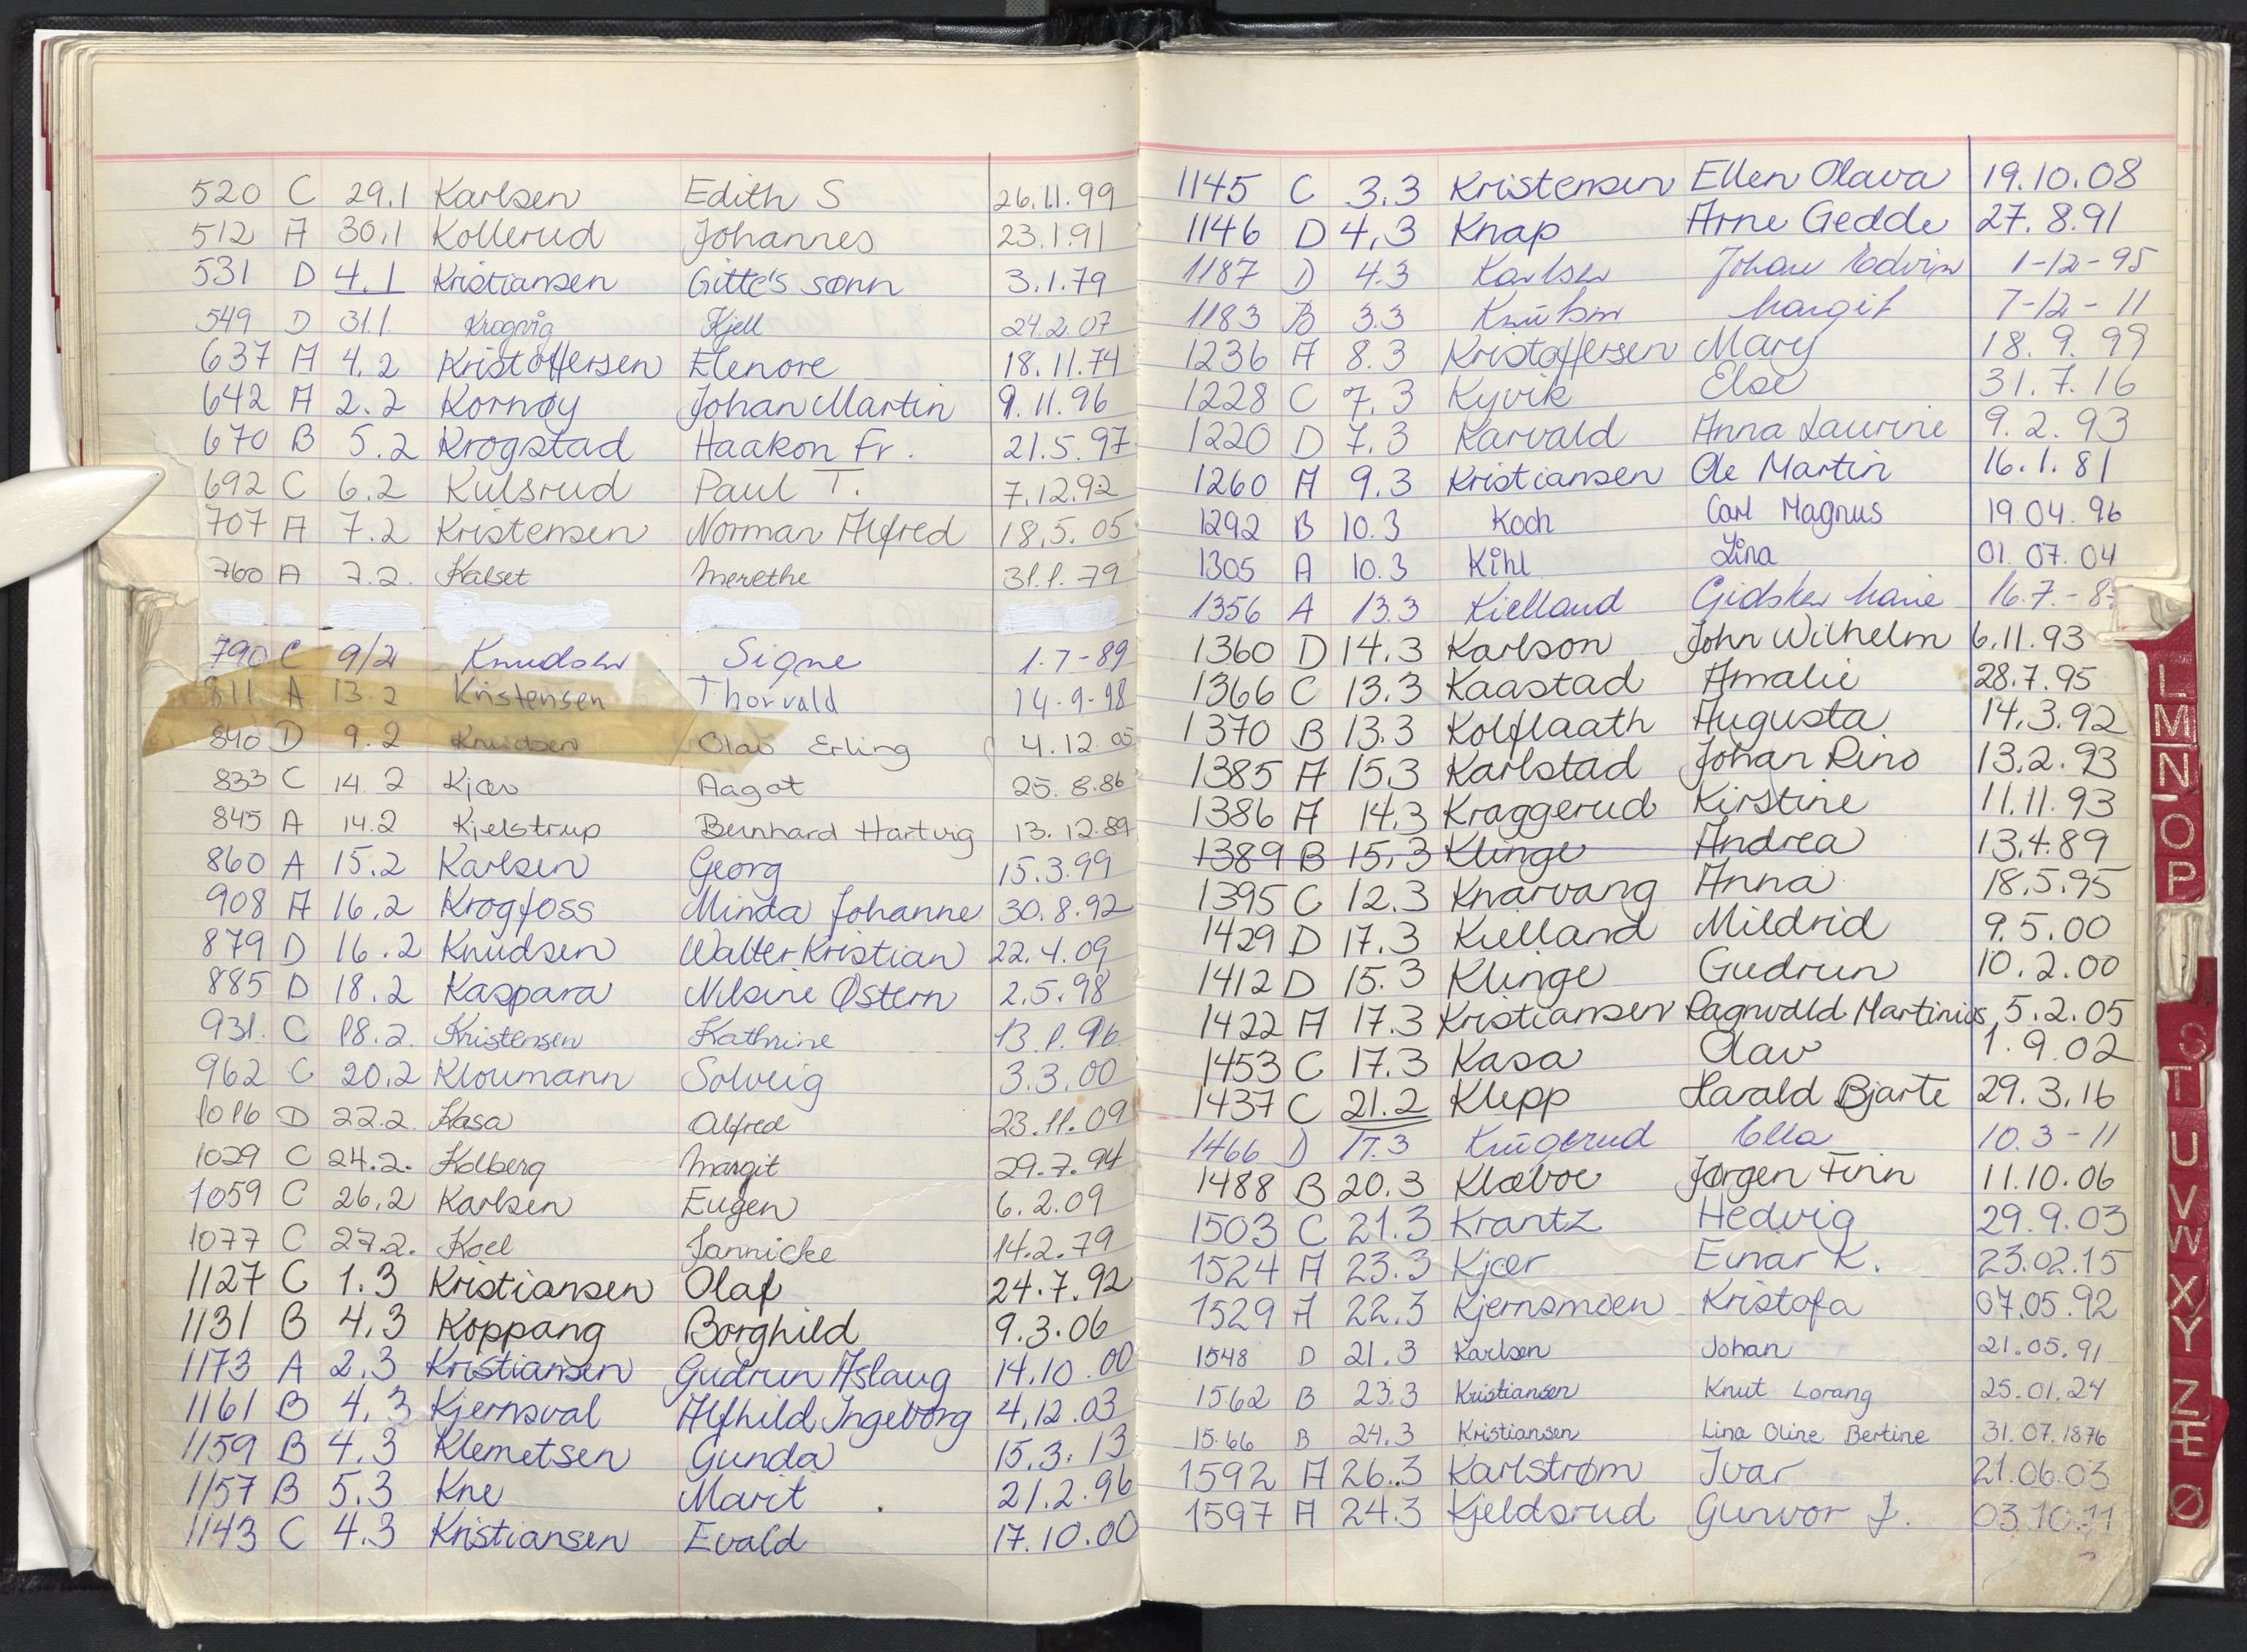 520 C 29.1 Karlsen Edith S 26.11.99
512 A 30.1 Kollerud Johannes 23.1.91
531 D 4.1 Kristiansen Gitte's sønn 3.1.79
549 D 31.1 Krogvig Kjell 24.2.07
637 A 4.2 Kristoffersen Elenore 18.11.74
642 A 2.2 Kornøy Johan Martin 9.11.96
670 B 5.2 Krogstad Haakon Fr. 21.5.97
692 C 6.2 Kulsrud Paul T. 7.12.92
707 A 7.2 Kristensen Norman Alfred 18.5.05
760 A 7.2. Kalset Merethe 31.1.79
790 C 9/2 Knudsen Signe 1.7-89
811 A 13.2 Kristensen Thorvald 14.9.98
840 D 9.2 Knudsen Olav Erling 4.12.05
833 C 14.2 Kjær Aagot 25.8.86
845 A 14.2 Kjelstrup Bernhard Hartvig 13.12.89
860 A 15.2 Karlsen Georg 15.3.99
908 A 16.2 Krogfoss Minda Johanne 30.8.92
879 D 16.2 Knudsen Walter Kristian 22.4.09
885 D 18.2 Kaspara Nilsine Østern 2.5.98
931. C 18.2. Kristensen Kathrine 13.1.96
962 C 20.2 Kloumann Solveig 3.3.00
1016 D 22.2. Kasa Alfred 23.11.09
1029 C 24.2. Kolberg Margit 29.7.94
1059 C 26.2 Karlsen Eugen 6.2.09
1077 C 27.2. Koel Jannicke 14.2.79
1127 C 1.3 Kristiansen Olaf 24.7.92
1131 B 4.3 Koppang Borghild 9.3.06
1173 A 2.3 Kristiansen Gudrun Aslaug 14.10.00
1161 B 4.3 Kjernsval Alfhild Ingeborg 4.12.03
1159 B 4.3 Klemetsen Gunda 15.3.13
1157 B 5.3 Kne Marit 21.2.96
1143 C 4.3 Kristiansen Evald 17.10.00
1145 C 3.3 Kristensen Ellen Olava 19.10.08
1146 D 4.3 Knap Arne Gedde 27.8.91
1187 D 4.3 Karlsen Johan Edvin 1-12-95
1183 B 3.3 Margit 7-12-11
1236 A 8.3 Kristoffersen Mary 18.9.99
1228 C 7.3 Kyvik Else 31.7.16
1220 D 7.3 Karvald Anna Laurine 9.2.93
1260 A 9.3 Kristiansen Ole Martin 16.1.81
1292 B 10.3 Koch Carl Magnus 19.04.96
1305 A 10.3 Kihl Lina 01.07.04
1356 A 13.3 Kielland Gidsken Marie 16.7.-8
1360 D 14.3 Karlson John Wilhelm 6.11.93
1366 C 13.3 Kaastad Amalie 28.7.95
1370 B 13.3 Kolflaath Augusta 14.3.92
1385 A 15.3 Karlstad Johan Rino 13.2.93
1386 A 14.3 Kraggerud Kirstine 11.11.93
1389 B 15.3 Klinge Andrea 13.4.89
1395 C 12.3 Knarvang Anna 18.5.95
1429 D 17.3 Kielland Mildrid 9.5.00
1412 D 15.3 Klinge Gudrun 10.2.00
1422 A 17.3 Kristiansen Ragnvald Martinius 5.2.05
1453 C 17.3 Kasa Olav 1.9.02
1437 C 21.2 Klepp Harald Bjarte 29.3.16
1466 D 17.3 Krügerud Ella 10.3-11
1488 B 20.3 Klæboe Jørgen Finn 11.10.06
1503 C 21.3 Krantz Hedvig 29.9.03
1524 A 23.3 Kjær Einar K. 23.02.15
1529 A 22.3 Kjernsmoen Kristofa 07.05.92
1548 D 21.3 Karlsen Johan 21.05.91
1562 B 23.3 Kristiansen Knut Lorang 25.01.24
1566 B 24.3 Kristiansen Lina Oline Bertine 31.07.1876
1592 A 26.3 Karlstrøm Ivar 21.06.03
1597 A 24.3 Kjeldsrud Gunvor J. 03.10.11
L
M
N
O
P
S
T
U
V
W
X
Y
Z
Æ
Ø